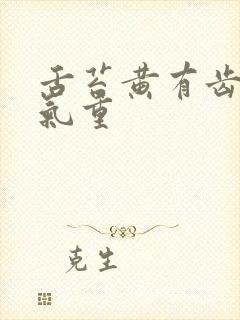 舌苔黄有齿
氣重
克生